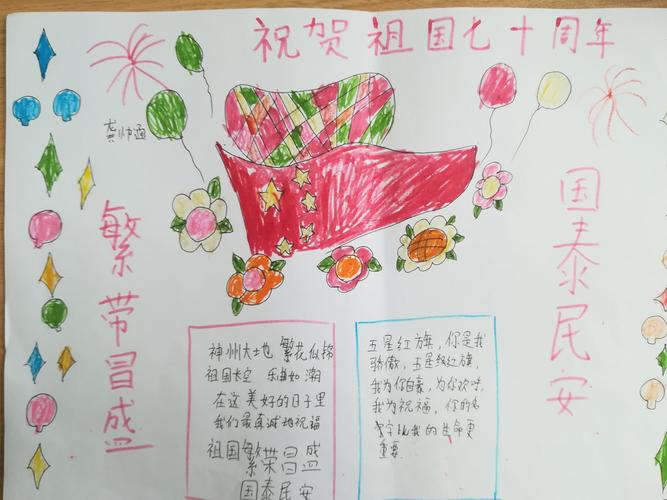 祝贺祖国七十周年
繁带昌盛
国泰民安
神州大地 繁花似锦
祖国长空 乐曲如潮
在这美好的日子里
我们最真诚地祝福
祖国繁荣昌盛
国泰民安
五星红旗，你是我
骄傲，五星红旗，
我为你自豪，为你欢呼，
我为祝福，你的名
字比我的生命更
重要